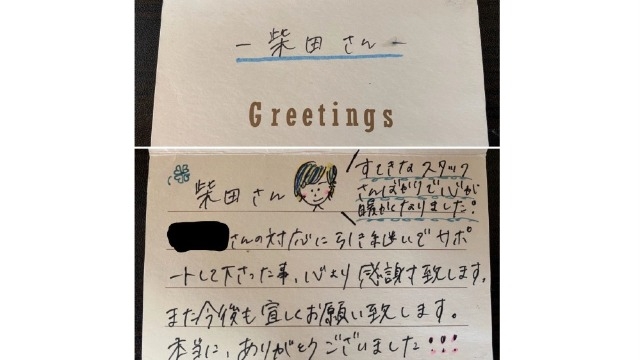 ー柴田さんー
Greetings
柴田さん
すてきなスタッフ
さんばかりで心が
暖かくなりました!
さんの対応に引き継いでサポ
ートして下さった事、心より感謝致します。
また今後も宜しくお願い致します。
本当に、ありがとうございました!!!